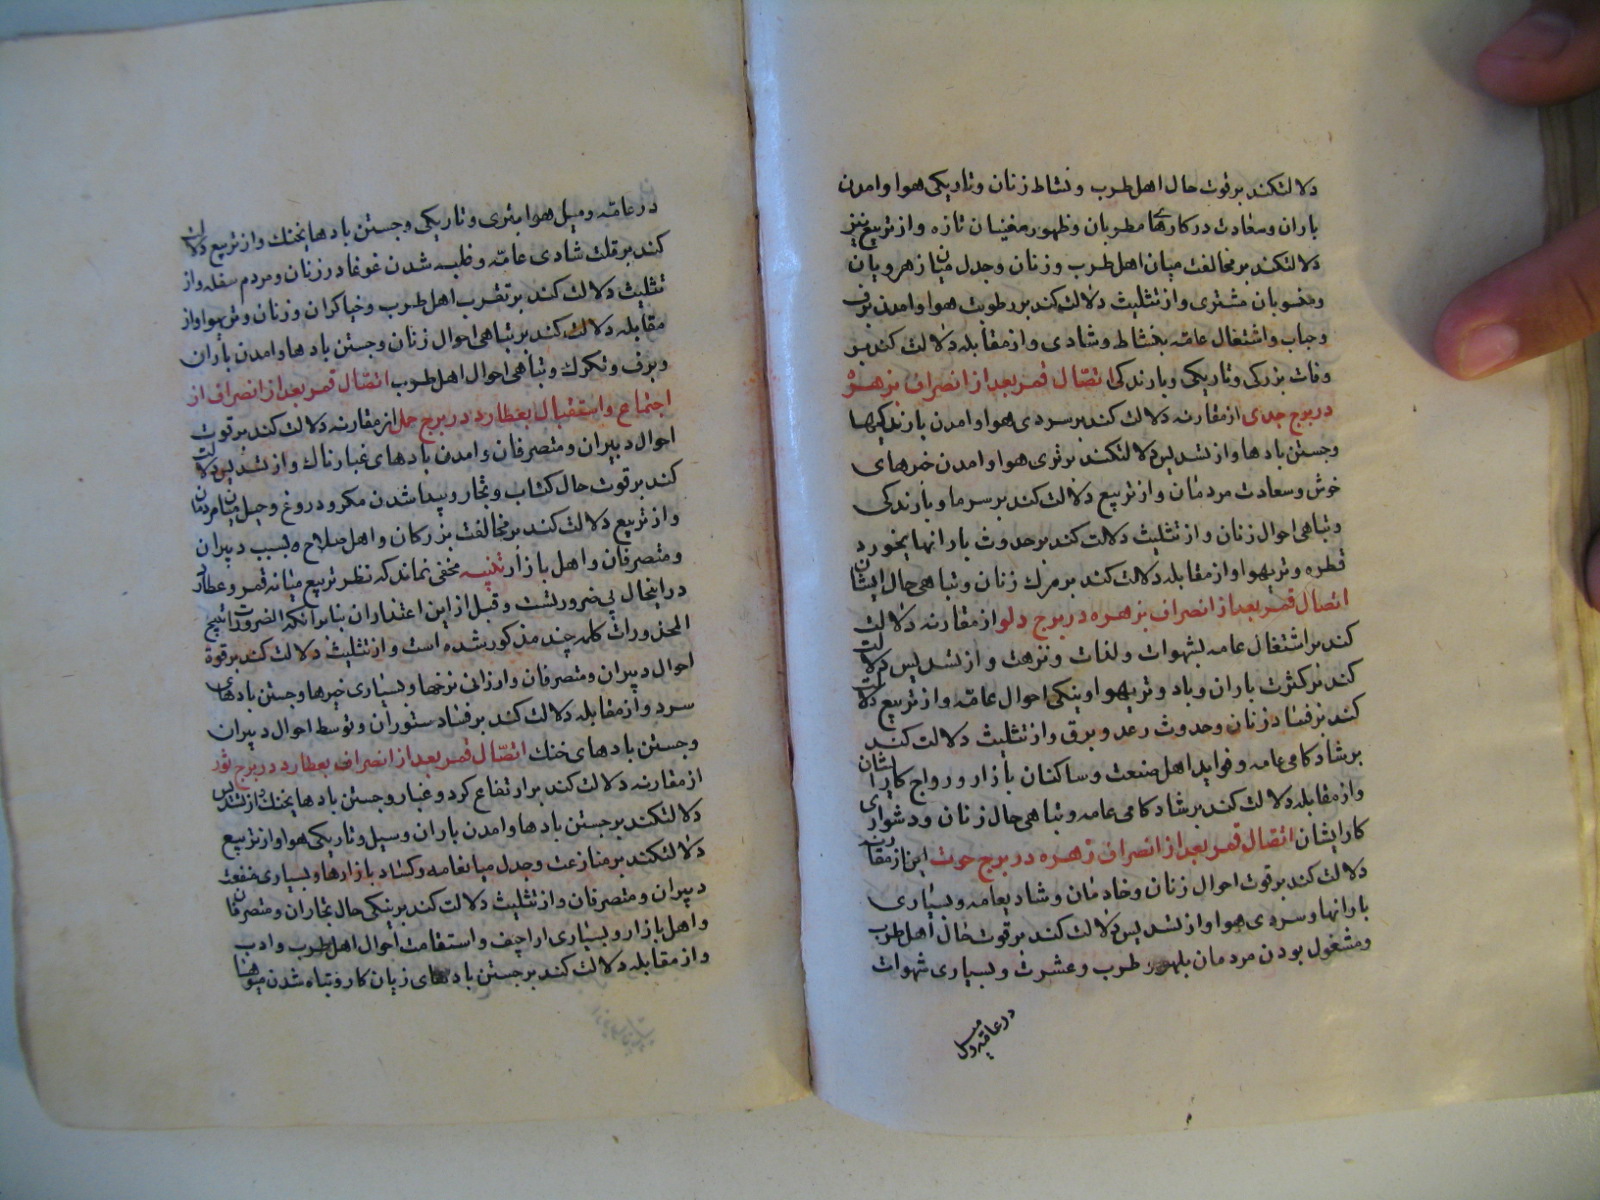 دلالتکند بر قوت حال اهل طرب و نشاط زنان و تاریکی هوا و امدن
باران و سعادت در کارهای مطربان و ظهور مغنیان تازه و از تربیع نیز
دلالتکند بر مخالفت میان اهل طرب و زنان و جدل میان زهرویان
و محبوبان مشتری و از تثلیث دلالت کند بر رطوبت هوا و امدن برف
و اشتغال عامه بنشاط و شادی و از مقابله دلالت کند بر
وفات بزرکی و تاریکی و بارندکی اتصال قمر بعد از انصراف بزهره
در برج جدی از مقارنه دلالت کند بر سردی هوا و امدن بارندکیها
و جستن بادها و از تسدیس دلالتکند بر تری هوا و امدن خبرهای
خوش و سعادت مردمان و از تربیع دلالت کند بر سرما و بارندکی
و تباهی احوال زنان و از تثلیث دلالت کند بر حدوث بارانها بخورد
قطره و تریهوا و از مقابله دلالت کند بر مرك زنان و تباهی حال ایشان
اتصال قمر بعد از انصراف بزهره در برج دلو از مقارنه دلالت
کند بر اشتغال عامه بشهوات و لذات و نزهت و از تسدیس دلالت
کند بر کثرت باران و باد و تریهوا و نیکی احوال عامه و از تربیع دلالت
کند بر فساد زنان و حدوث رعد و برق و از تثلیث دلالت کند
بر شادکامی عامه و فواید اهل صنعت و ساکنان بازار و رواج کار ایشان
و از مقابله دلالت کند بر شادکامی عامه و تباهی حال زنان و دشواری
کار ایشان اتصال قمر بعد از انصراف زهره در برج حوت این از مقارنه
دلالت کند بر قوت احوال زنان و خادمان و شادیعامه و بسیاری
بارانها و سردی هوا و از تسدیس دلالت کند بر قوت حال اهل طرب
و مشغول بودن مردمان بلهو و طرب و عشرت و بسیاری شهوات
در عامه و میل
در عامه و میل هوا بتری و تاریکی و جستن بادها یخنك و از تربیع دلالت
کند بر قلت شادی عامه و غلبه شدن غوغا در زنان و مردم سفله و از
تثلیث دلالت کند بر تقرب اهل طرب و خیاکران و زنان و تریهوا و از
مقابله دلالت کند بر تباهی احوال زنان و جستن بادها و امدن باران
و برف و تکرك و تباهی احوال اهل طرب اتصال قمر بعد از انصراف از
اجتماع و استقبال بعطارد در برج حمل از مقارنه دلالت کند بر قوت
احوال دبیران و متصرفان و امدن بادهای غبارناك و از تسدیس دلالت
کند بر قوت حال کتاب و تجار و پیدا شدن مکر و دروغ و حیل میان مردمان
و از تربیع دلالت کند بر مخالفت بزرکان و اهل صلاح بسبب دبیران
و متصرفان و اهل بازار تنبیه مخفی نماند که نظر تربیع میانه قمر و عطارد
در اینحال بی ضروریست و قبل از این اعتذاران بنابر انکه الضرورات تبیح
المحذورات کلمه چند مذکور شده است و از تثلیث دلالت کند بر قوة
احوال دبیران و متصرفان و ارزانی نرخها و بسیاری خیرها و جستن بادهای
سرد و از مقابله دلالت کند بر فساد ستوران و توسط احوال دبیران
و جستن بادهای خنك اتصال قمر بعد از انصراف بعطارد در برج ثور
از مقارنه دلالت کند بر ارتفاع کرد و غبار و جستن بادها یخنك و از تسدیس
دلالتکند بر جستن بادها و امدن باران و سیل و تاریکی هوا و از تربیع
دلالتکند بر منازعت و جدل میانعامه و کساد بازارها و بسیاری منفعت
دبیران و متصرفان و از تثلیث دلالت کند بر نیکی حال تجاران و متصرفان
و اهل بازار و بسیاری اراجیف و استقامت احوال اهل طرب و ادب
و از مقابله دلالت کند بر جستن بادهای زیان کار و تباه شدن میوهها